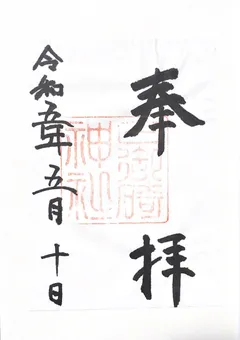 奉拝
御崎神社
令和五年五月十日